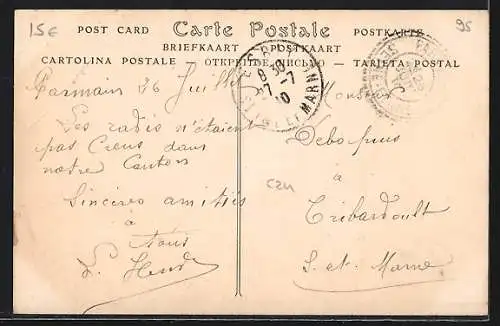 15€
95
POST CARD Carte Postale POSTKARTE
BRIEFKAART POSTKAART
CARTOLINA POSTALE — ОТКРЫТОЕ ПИСЬМО — TARJETA POSTAL
8 30
27 -7
10
MARNE
Parmain 26 Juillet
Les radis n'étaient
pas Creus dans
notre Canton
Sincères amitiés
à
tous
Monsieur
à
Tribardoult
S. et. Marne
C24